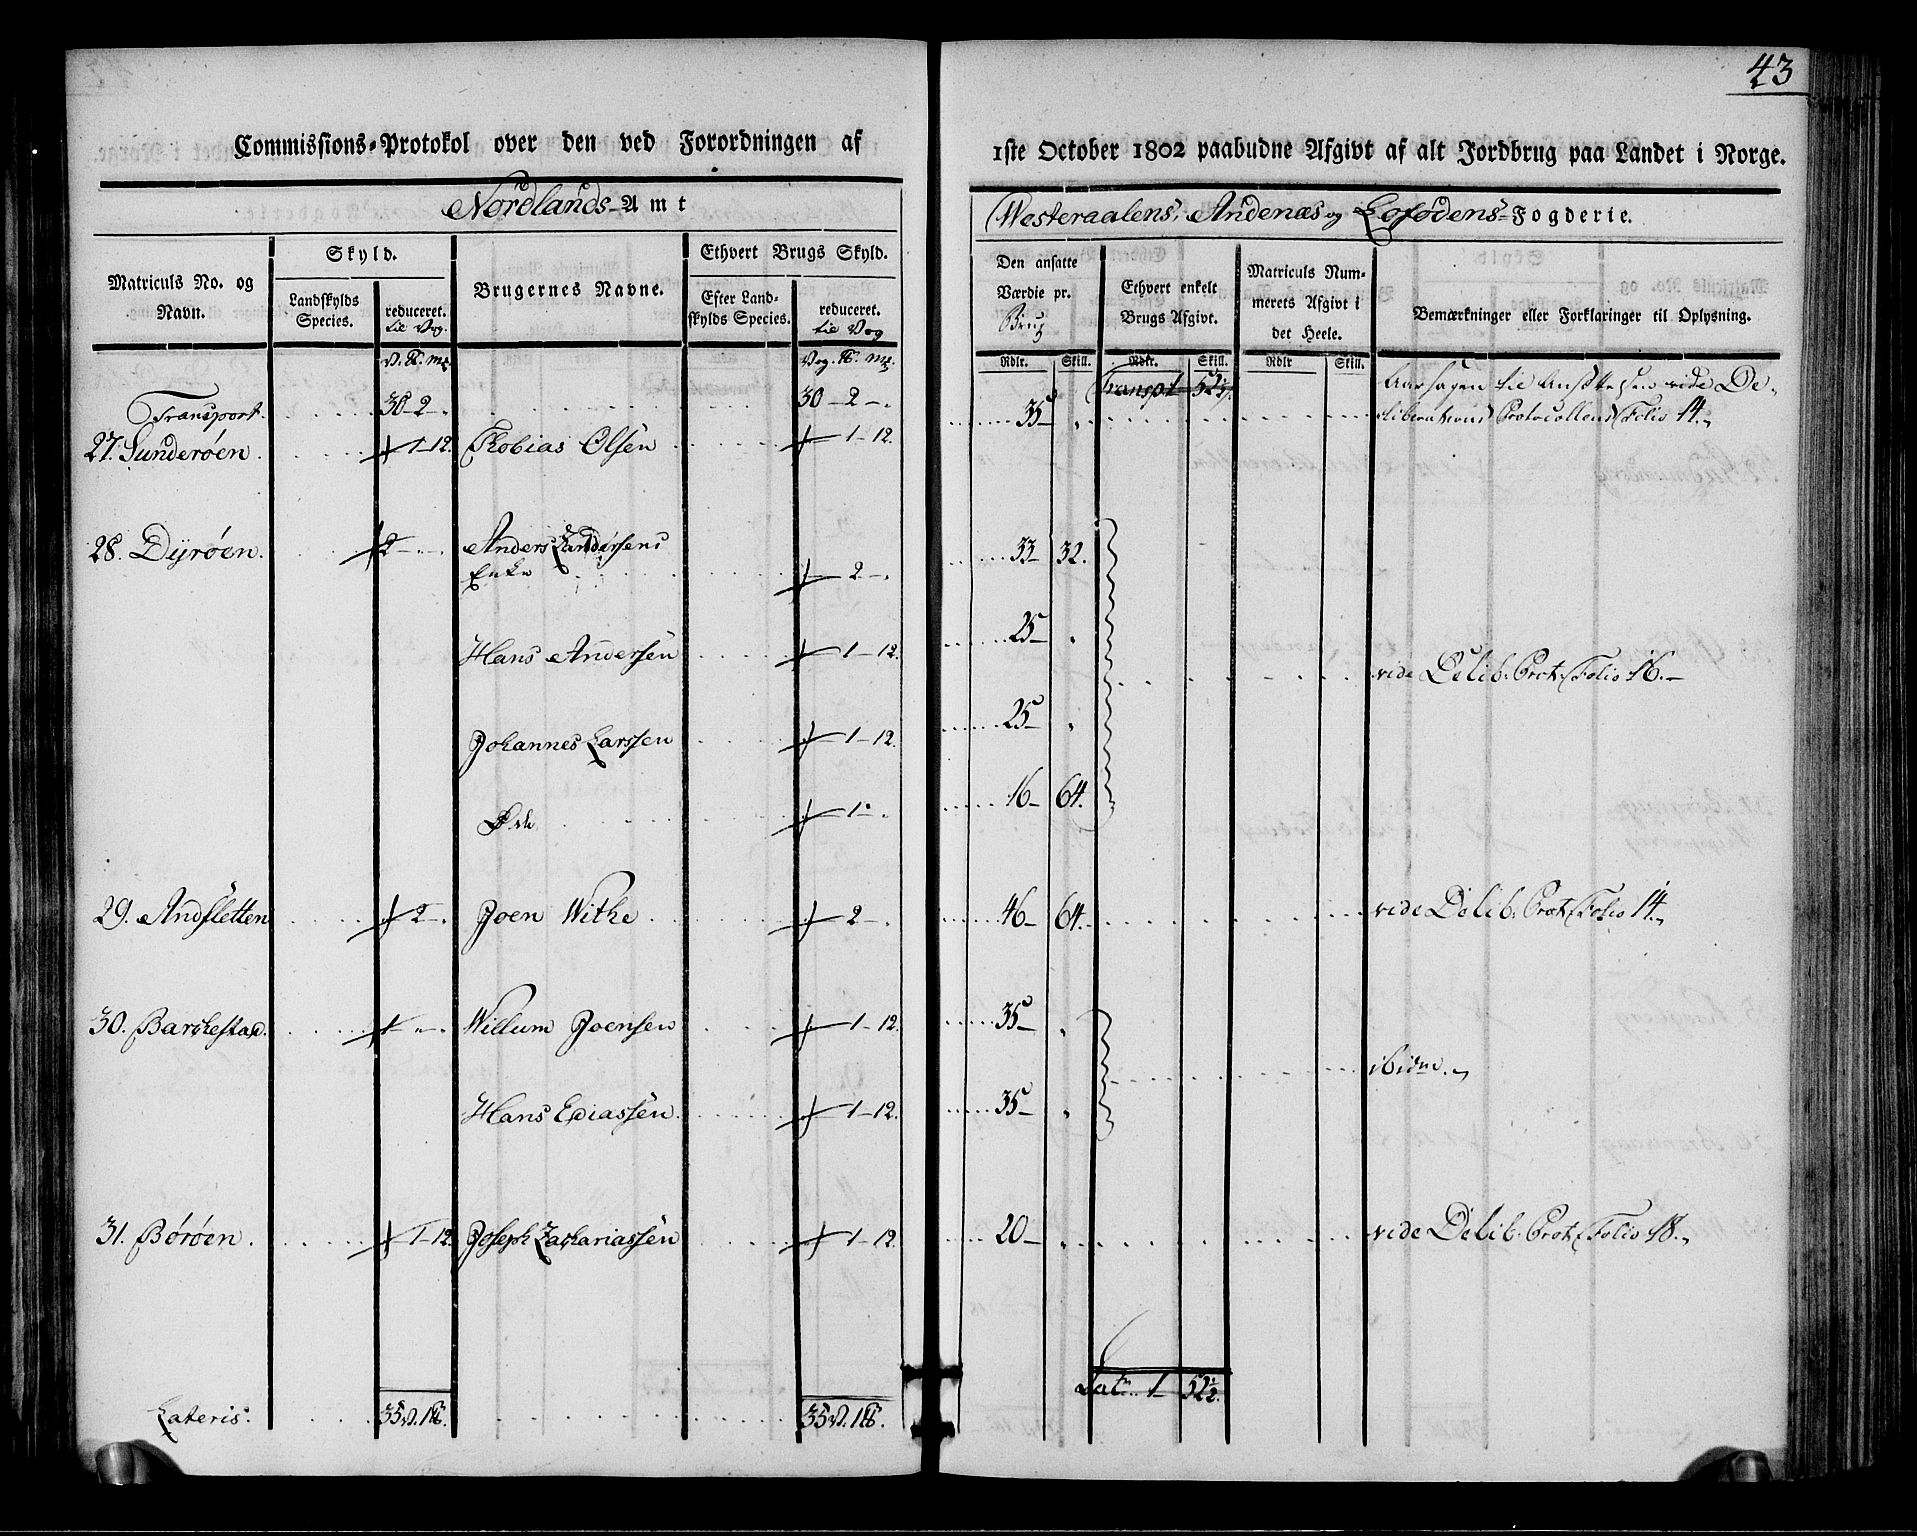 43
Commissions-Protokol over den ved Forordningen af
1ste October 1802 paabudne Afgivt af alt Jordbrug paa Landet i Norge.
Nordlands-Amt
Westeraalens, Andenæs og Lofodens-Fogderie.
Matriculs No. og Navn.
Skyld.
Landskylds Species.
reduceret. til Vog.
Brugernes Navne.
Ethvert Brugs Skyld.
Efter Landskylds Species.
reduceret. til Vog
Den ansatte Værdie pr. Brug
Ethvert enkelt Brugs Afgivt.
Matriculs Nummerets Afgivt i det Heele.
Bemærkninger eller Forklaringer til Oplysning.
Rdlr. Skill. Rdlr. Skill. Rdlr Skill.
Transport. 30-2-. 30-2-. Transpt 1 52½
27. Sunderöen. 1-12. Tobias Olsen 1-12. 35- Aarsagen til Ansættelsen vide De-
liberations Protocollens Folio 14.
28. Dyröen. 2-. Anders Zandersens
Enke 2-. 33- 32.
Hans Andersen 1-12. 25-
vide Delib. Prot. Folio 16.
Johannes Larssen 1-12. 25-
Øde 1-. 16- 64.
29. Andsletten 2-. Joen Withe 2-. 46- 64. vide Delib. Prot. Folio 14.
30. Barchestad. Willum Joensen 1-12. 35-
ibidm.
Hans Eliassen 1-12. 35-
31. Böröen. 1-12. Joseph Zachariassen 1-12. 20- vide Delib. Prot. Folio 18.
Lat. 1- 52½.
Lateris. 35 V. 1 ℔. 35 V. 1 ℔.